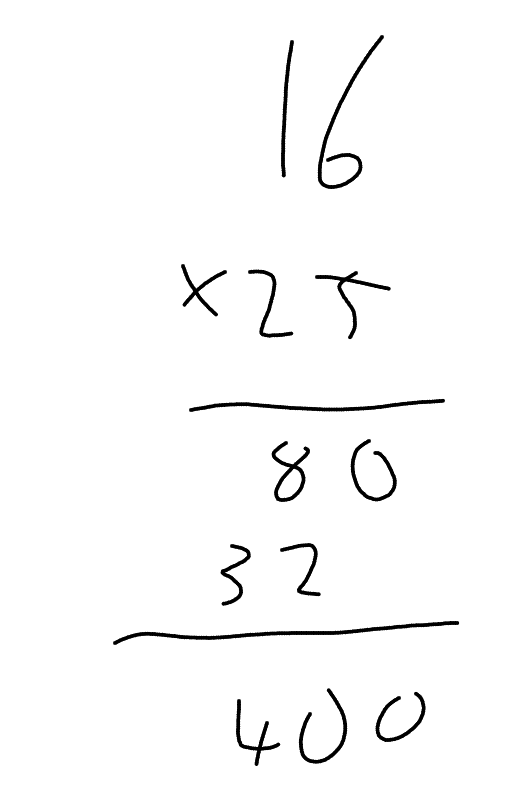 16
×25
80
32
400